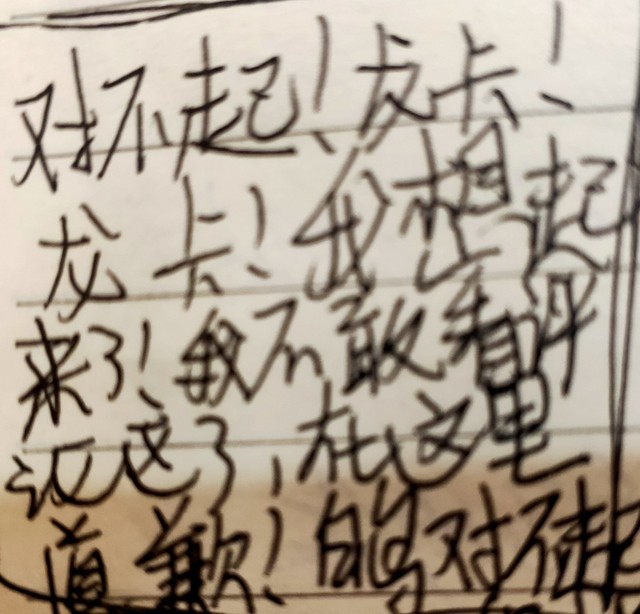 对不起！友卡！
龙卡！我想起
来了！我不敢看评
论区了！在这里
道歉！的对不起